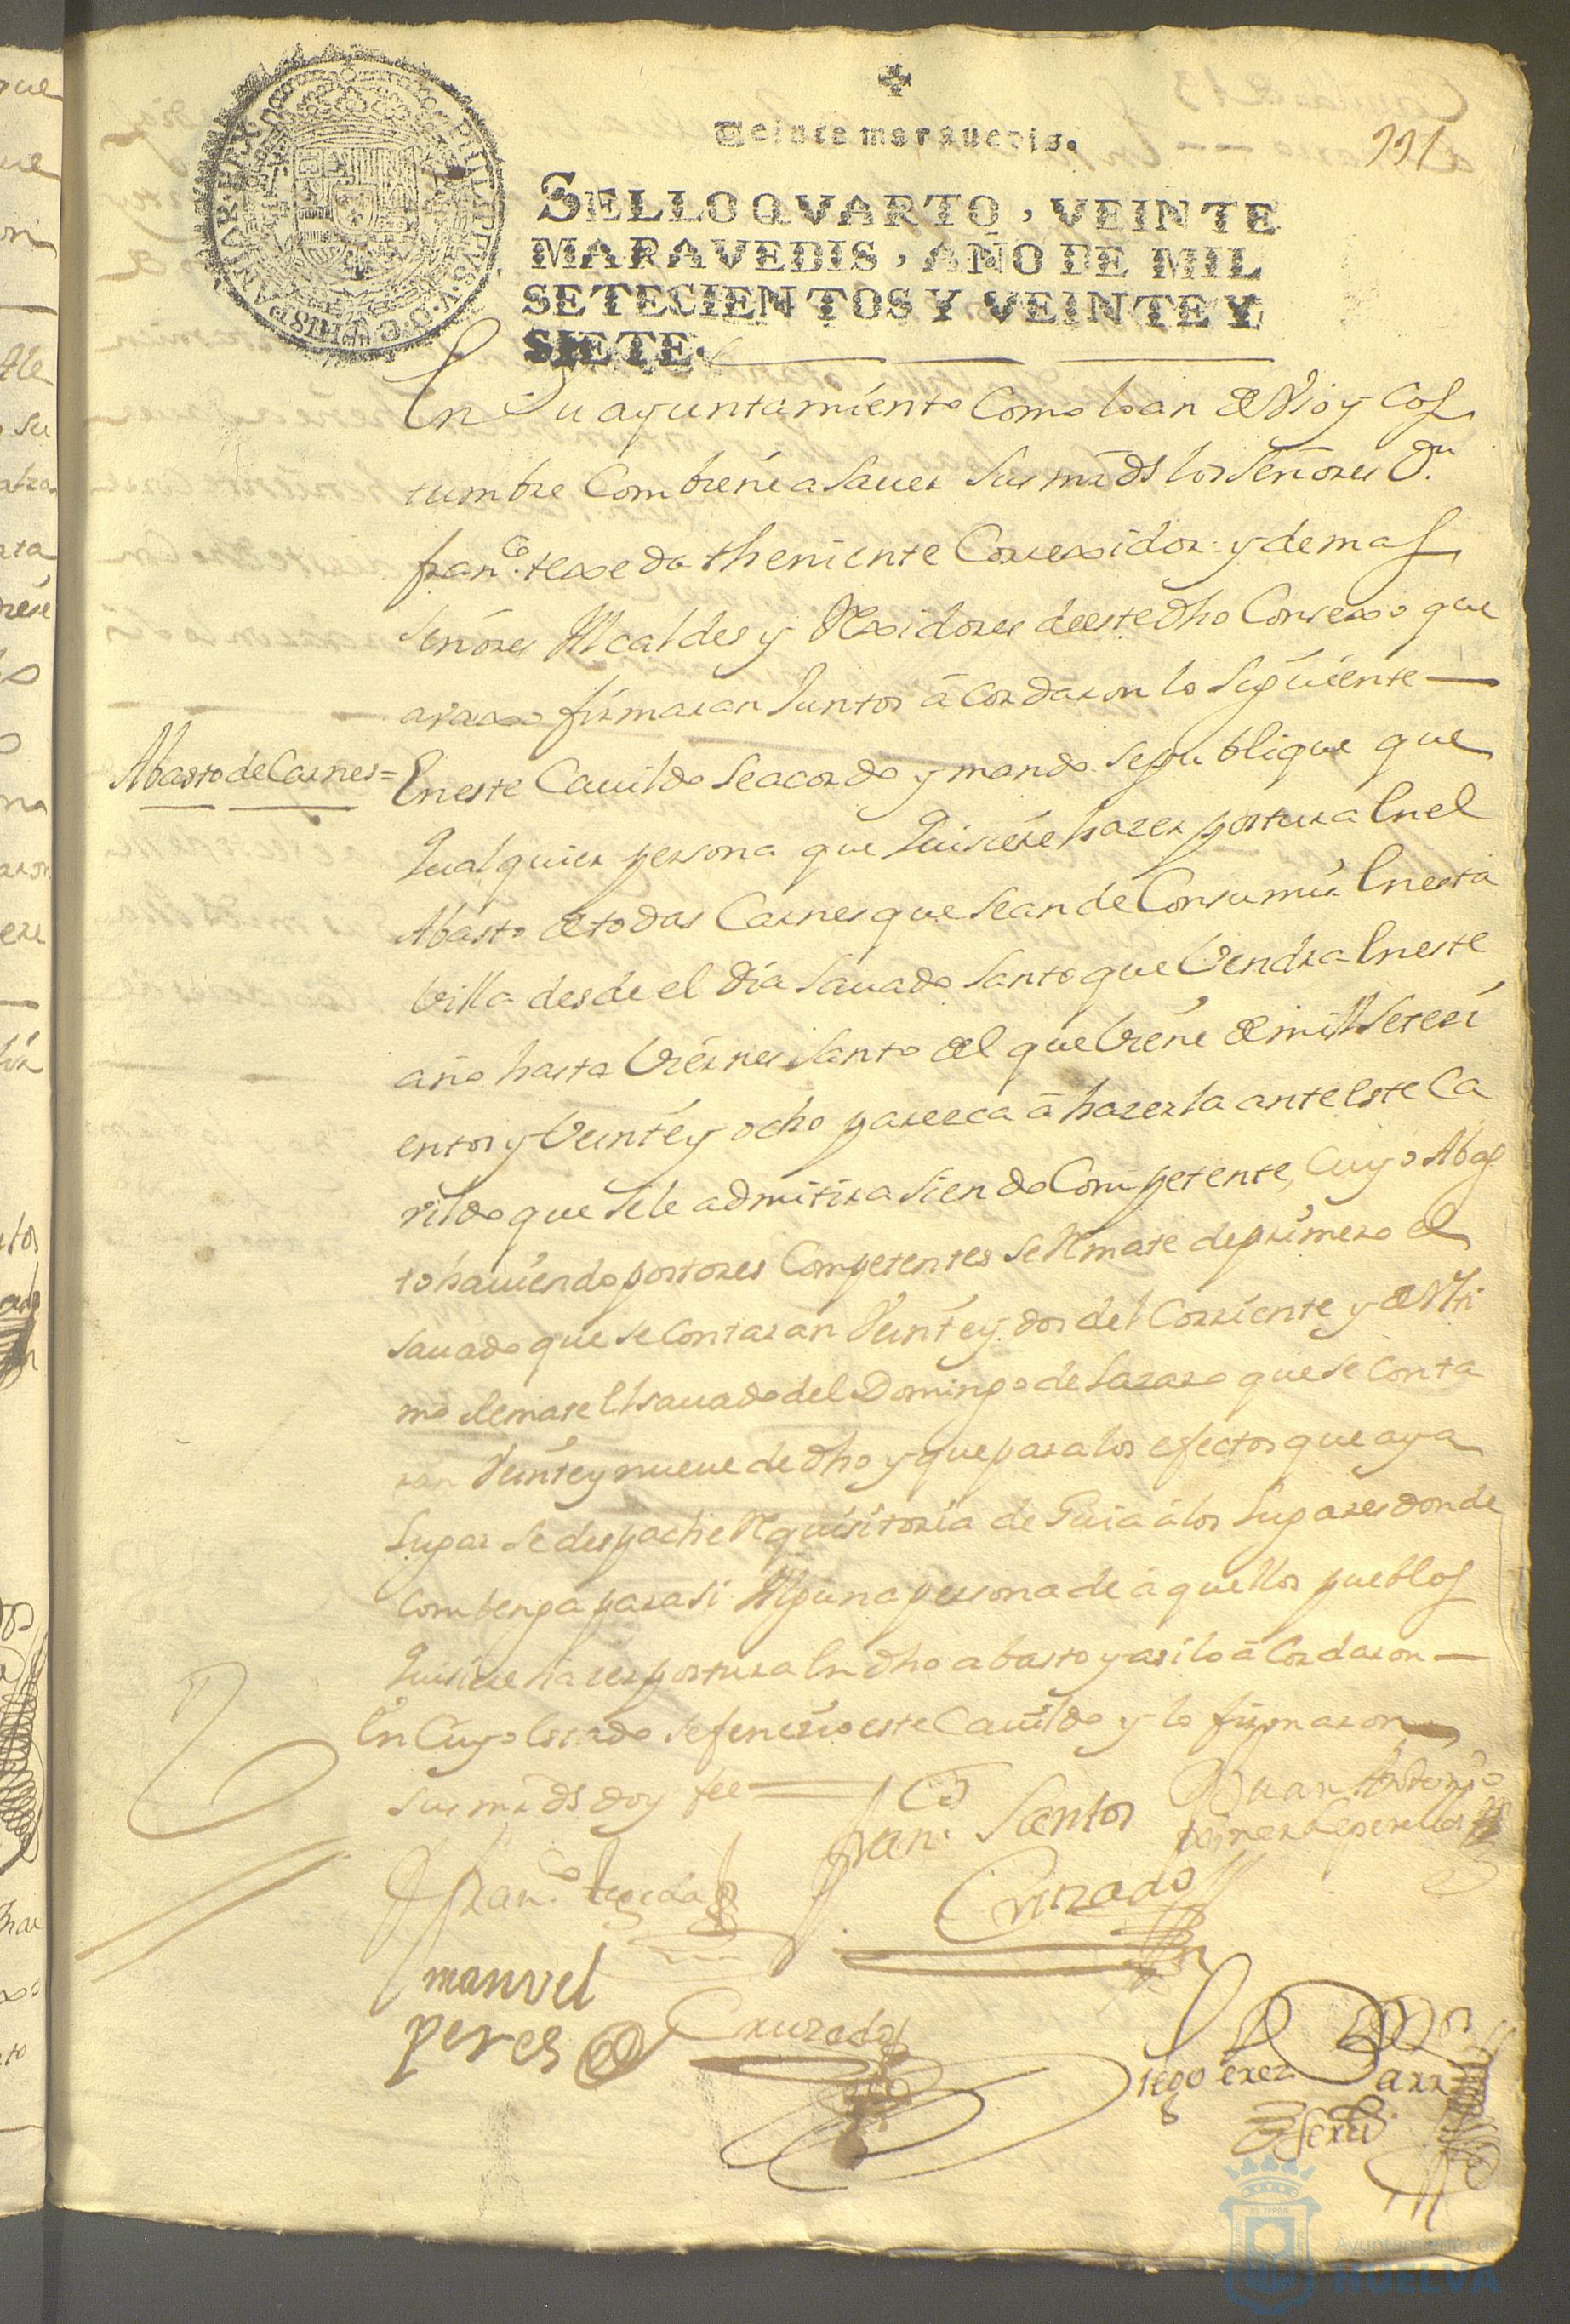 Veinte maravedis.
991
SELLO QVARTO, VEINTE
MARAVEDIS, AÑO DE MIL
SETECIENTOS Y VEINTE Y
SIETE.
PHILIPPVS·V·D·G·HISPANIAR·REX
En Su ayuntamiento Como lo an de Vso y Cos
tumbre Combiene a Sauer Sus mrds los Señores Dn
franco texeda theniente Correxidor y demas
Señores Alcaldes y Rexidores de este dho Consexo que
avaxo firmaran Juntos acordaron lo Siguiente
Abasto de Carnes =
En este Cauildo Se acordo y mando Se publique que
Qualquier persona que Quisiere hazer postura En el
Abasto de todas Carnes que Sean de Consumir En esta
Villa desde el dia Sauado Santo que Vendra En este
año hasta Viernes Santo del que Viene de mill Setesi
entos y Veinte y ocho paresca a hazerla ante Este Ca
vildo que Se le admitira Siendo Competente, Cuyo Abas
to hauiendo postores Competentes Se Remate de primero el
Sauado que Se Contaran Veinte y dos del Corriente y de Vlti
mo Remate El sauado del Domingo de Lazaro que Se Conta
ran Veinte y nueue de dho y que para los efectos que aya
Lugar Se despache Requisitoria de Guia a los Lugares donde
Combenga para Si Alguna persona de aquellos pueblos
Quisiere hazer postura En dho abasto y asi lo acordaron
En Cuyo Estado Se feneсio este Cauildo y lo firmaron
Sus mrds doy fee
Franco Santos
Cruzado
Juan Antonio
Franco texeda
manvel
peres
Cruzado
Diego Perez Barr
AYUNTAMIENTO DE
HUELVA